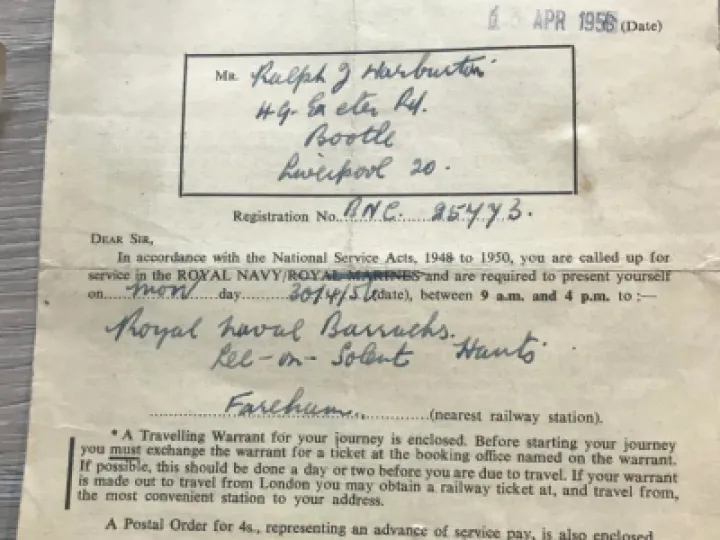 APR 1956 (Date)
MR. Ralph J Warburton
49. Exeter Rd.
Bootle
Liverpool 20.
Registration No. BNC. 25473.
DEAR SIR,
In accordance with the National Service Acts, 1948 to 1950, you are called up for
service in the ROYAL NAVY/ROYAL MARINES and are required to present yourself
on mon day 30/4/56 (date), between 9 a.m. and 4 p.m. to :—
Royal Naval Barracks.
Lee-on-Solent Hants
Fareham (nearest railway station).
* A Travelling Warrant for your journey is enclosed. Before starting your journey
you must exchange the warrant for a ticket at the booking office named on the warrant.
If possible, this should be done a day or two before you are due to travel. If your warrant
is made out to travel from London you may obtain a railway ticket at, and travel from,
the most convenient station to your address.
A Postal Order for 4s., representing an advance of service pay, is also enclosed